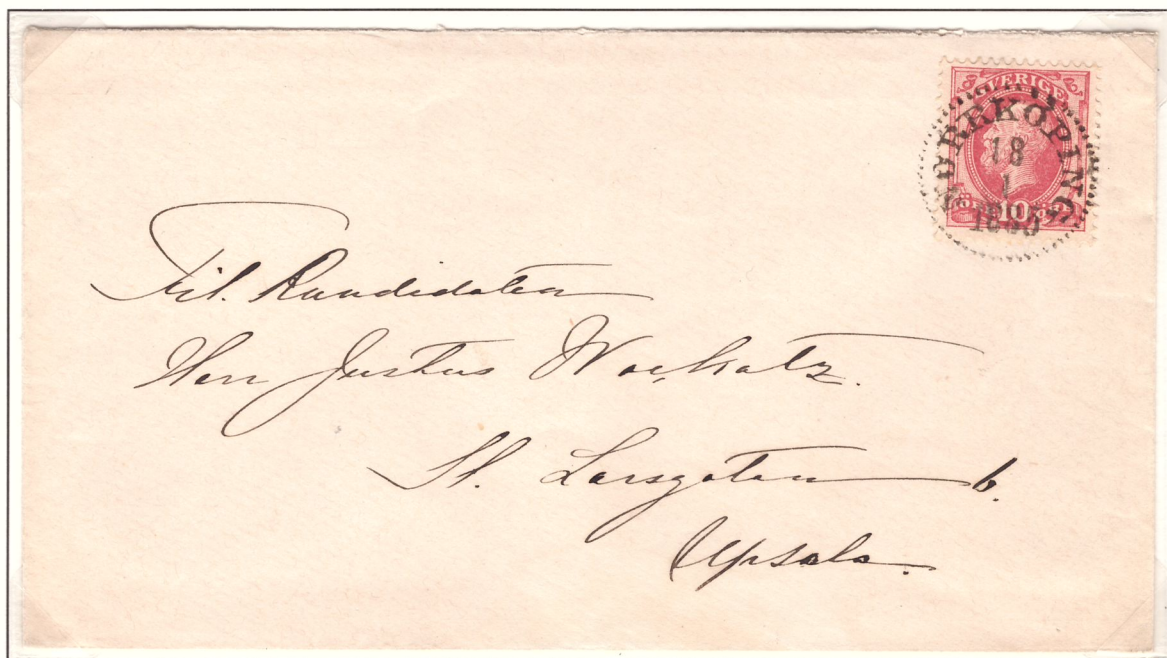 SVERIGE
NORRKÖPING
18
1
10
Fil. Kandidaten
Herr Justus
St. Larsgatan 6.
Upsala.